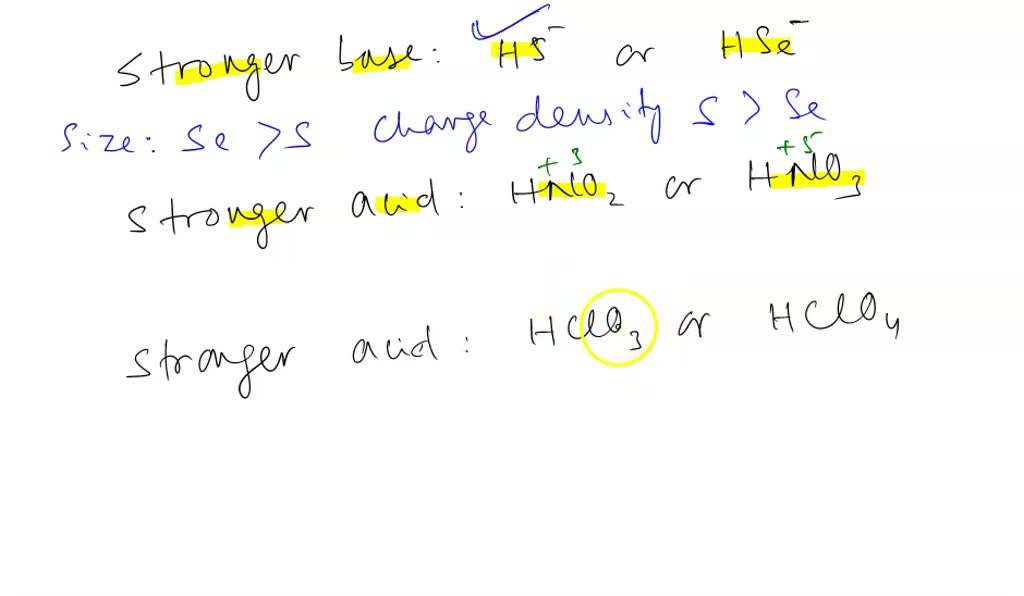 stronger base: HS⁻ or HSe⁻
size: Se > S change density S > Se
+3 +5
stronger acid: HNO₂ or HNO₃
stronger acid: HClO₃ or HClO₄